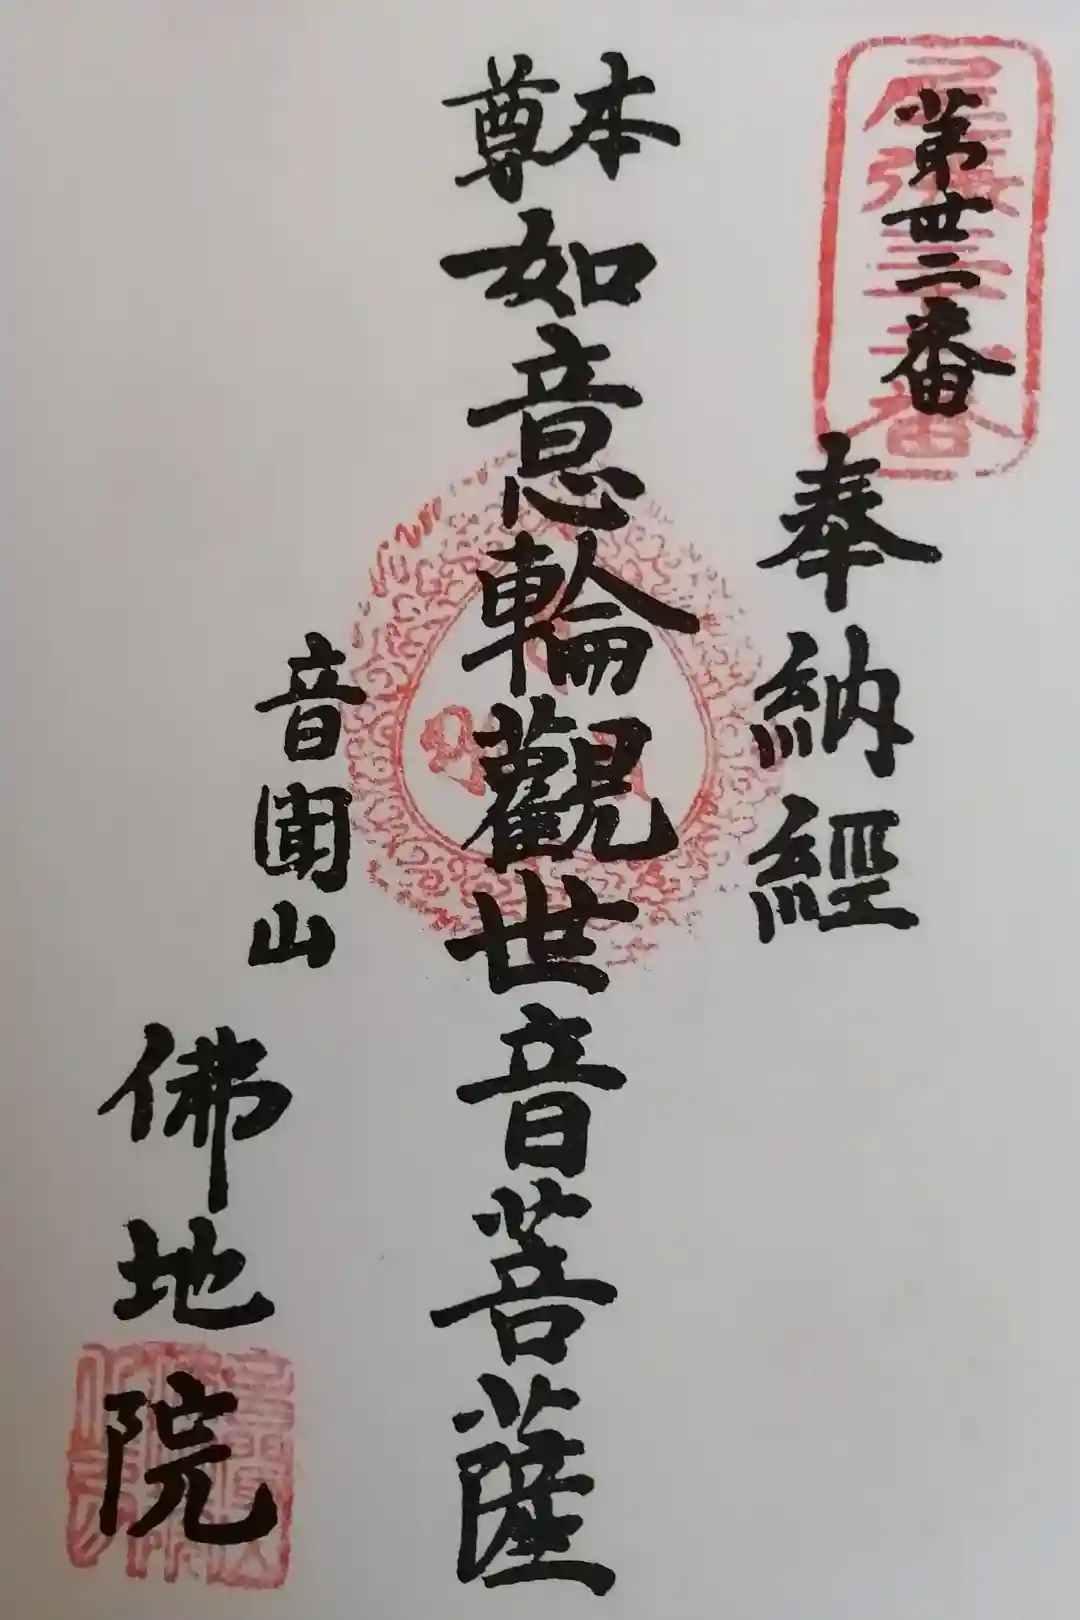 第丗二番
奉納經
本尊
如意輪觀世音菩薩
音聞山
佛地院